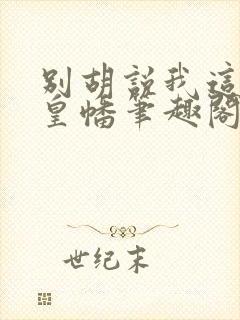 别胡说我这
皇幡笔趣阁
世纪末